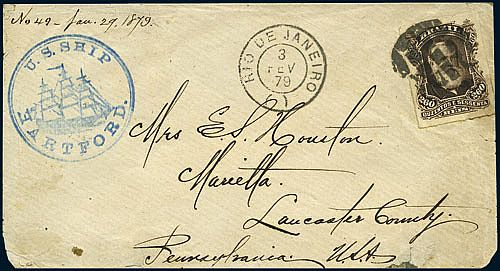 No 49 - Jan. 29, 1879.
U.S. SHIP
HARTFORD.
RIO DE JANEIRO
3
FEV
79
BRAZIL
260 260
DUZENTOS E SESSENTA
REIS
Mrs E. S. Houston.
Marietta.
Lancaster County.
Pennsylvania. U.S.A.